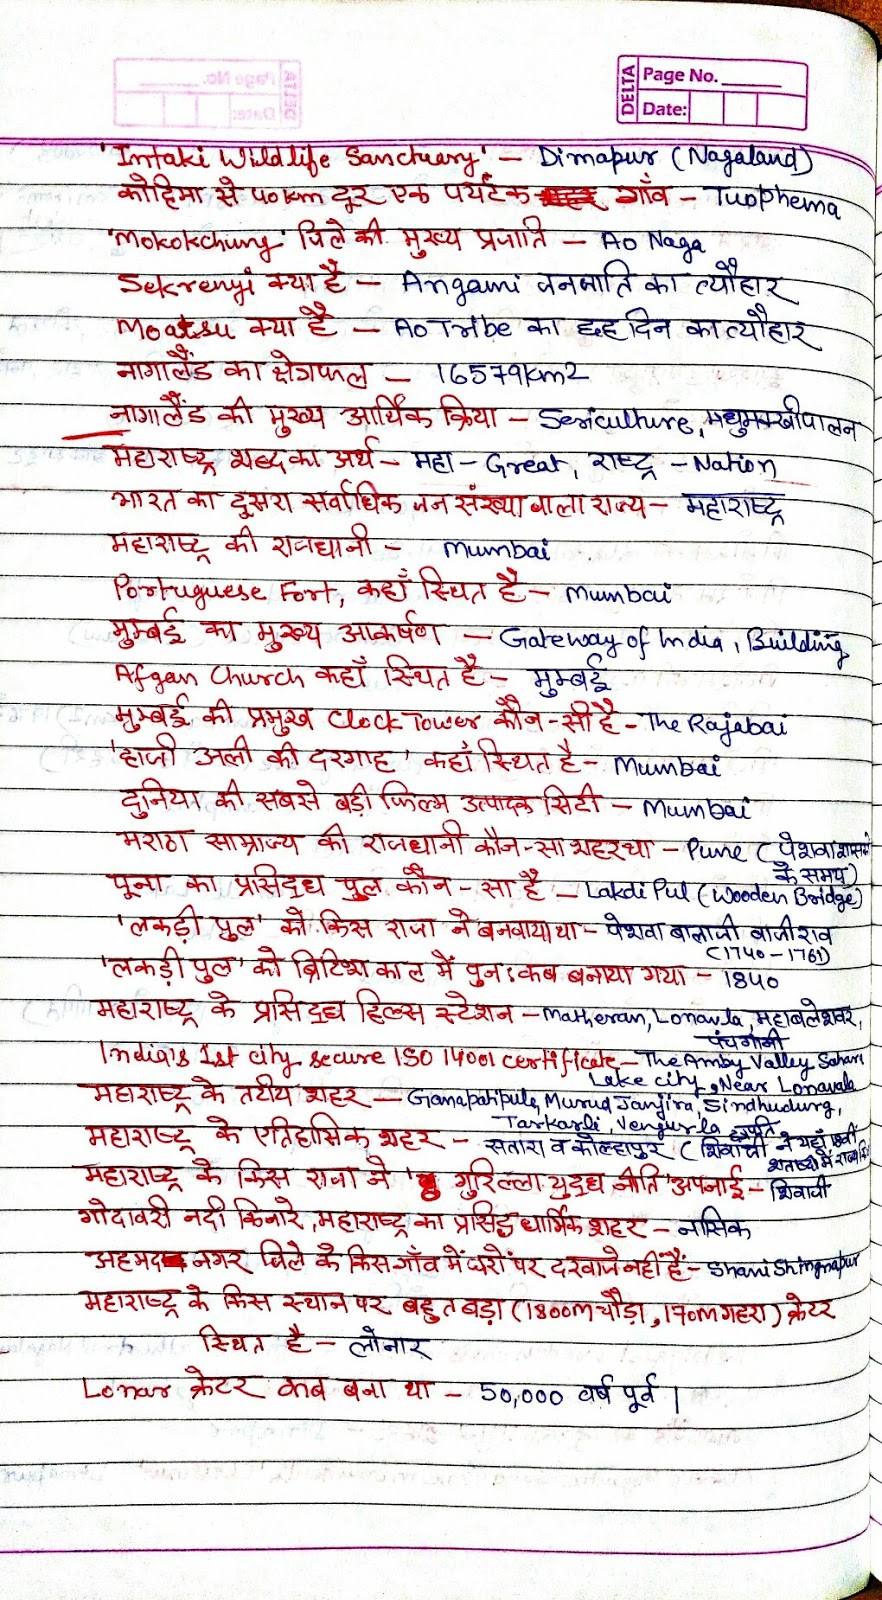 DELTA Page No.
Date:
'Intaki Wildlife Sanctuary' – Dimapur (Nagaland)
कोहिमा से 40km दूर एक पर्यटक गाँव – Tuophema
'Mokokchung' जिले की मुख्य प्रजाति – Ao Naga
Sekrenyi क्या है – Angami जनजाति का त्यौहार
Moatsu क्या है – Ao Tribe का छह दिन का त्यौहार
नागालैंड का क्षेत्रफल – 16579km2
नागालैंड की मुख्य आर्थिक क्रिया – Sericulture, मधुमक्खीपालन
महाराष्ट्र शब्द का अर्थ – महा – Great, राष्ट्र – Nation
भारत का दुसरा सर्वाधिक जनसंख्या वाला राज्य – महाराष्ट्र
महाराष्ट्र की राजधानी – Mumbai
Portuguese Fort, कहाँ स्थित है – Mumbai
मुम्बई का मुख्य आकर्षण – Gateway of India, Building
Afgan Church कहाँ स्थित है – मुम्बई
मुम्बई की प्रमुख Clock Tower कौन-सी है – The Rajabai
'हाजी अली की दरगाह' कहाँ स्थित है – Mumbai
दुनिया की सबसे बड़ी फिल्म उत्पादक सिटी – Mumbai
मराठा साम्राज्य की राजधानी कौन-सा शहर था – Pune (पेशवा शासन
के समय)
पूना का प्रसिद्ध पुल कौन-सा है – Lakdi Pul (Wooden Bridge)
'लकड़ी पुल' को किस राजा ने बनवाया था – पेशवा बालाजी बाजीराव
(1740-1761)
'लकड़ी पुल' को ब्रिटिश काल में पुनः कब बनाया गया – 1840
महाराष्ट्र के प्रसिद्ध हिल्स स्टेशन – Matheran, Lonavla, महाबलेश्वर,
पंचगनी
India's 1st city secure ISO 14001 certificate – The Amby Valley Sahara
Lake city, Near Lonavala
महाराष्ट्र के तटीय शहर – Ganapatipule, Murud Janjira, Sindhudurg,
Tarkarli, Vengurla
महाराष्ट्र के एतिहासिक शहर – सतारा व कोल्हापुर (शिवाजी ने यहाँ
शताब्दी में
महाराष्ट्र के किस राजा ने 'गुरिल्ला युद्ध नीति' अपनाई – शिवाजी
गोदावरी नदी किनारे, महाराष्ट्र का प्रसिद्ध धार्मिक शहर – नासिक
अहमदनगर जिले के किस गाँव में घरों पर दरवाजे नहीं हैं – Shani Shingnapur
महाराष्ट्र के किस स्थान पर बहुत बड़ा (1800m चौड़ा, 170m गहरा) क्रेटर
स्थित है – लोनार
Lonar क्रेटर कब बना था – 50,000 वर्ष पूर्व |